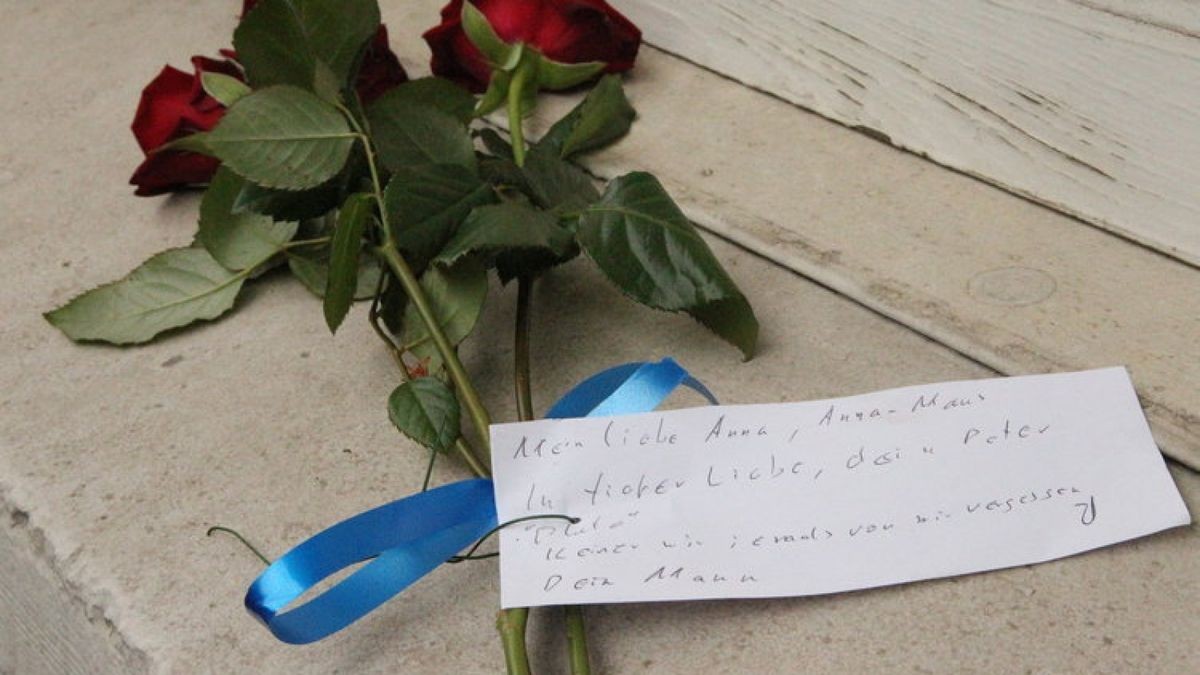 Mein liebe Anna, Anna-Maus
In tiefer Liebe, dein Peter
Keiner wir jemals von wir vergessen
Dein Mann